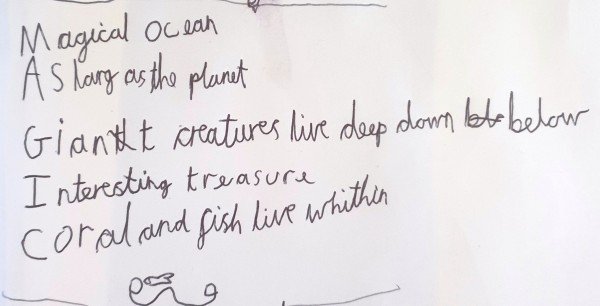 Magical Ocean
As larg as the planet
Giant creatures live deep down below
Interesting treasure
Coral and fish live whithin